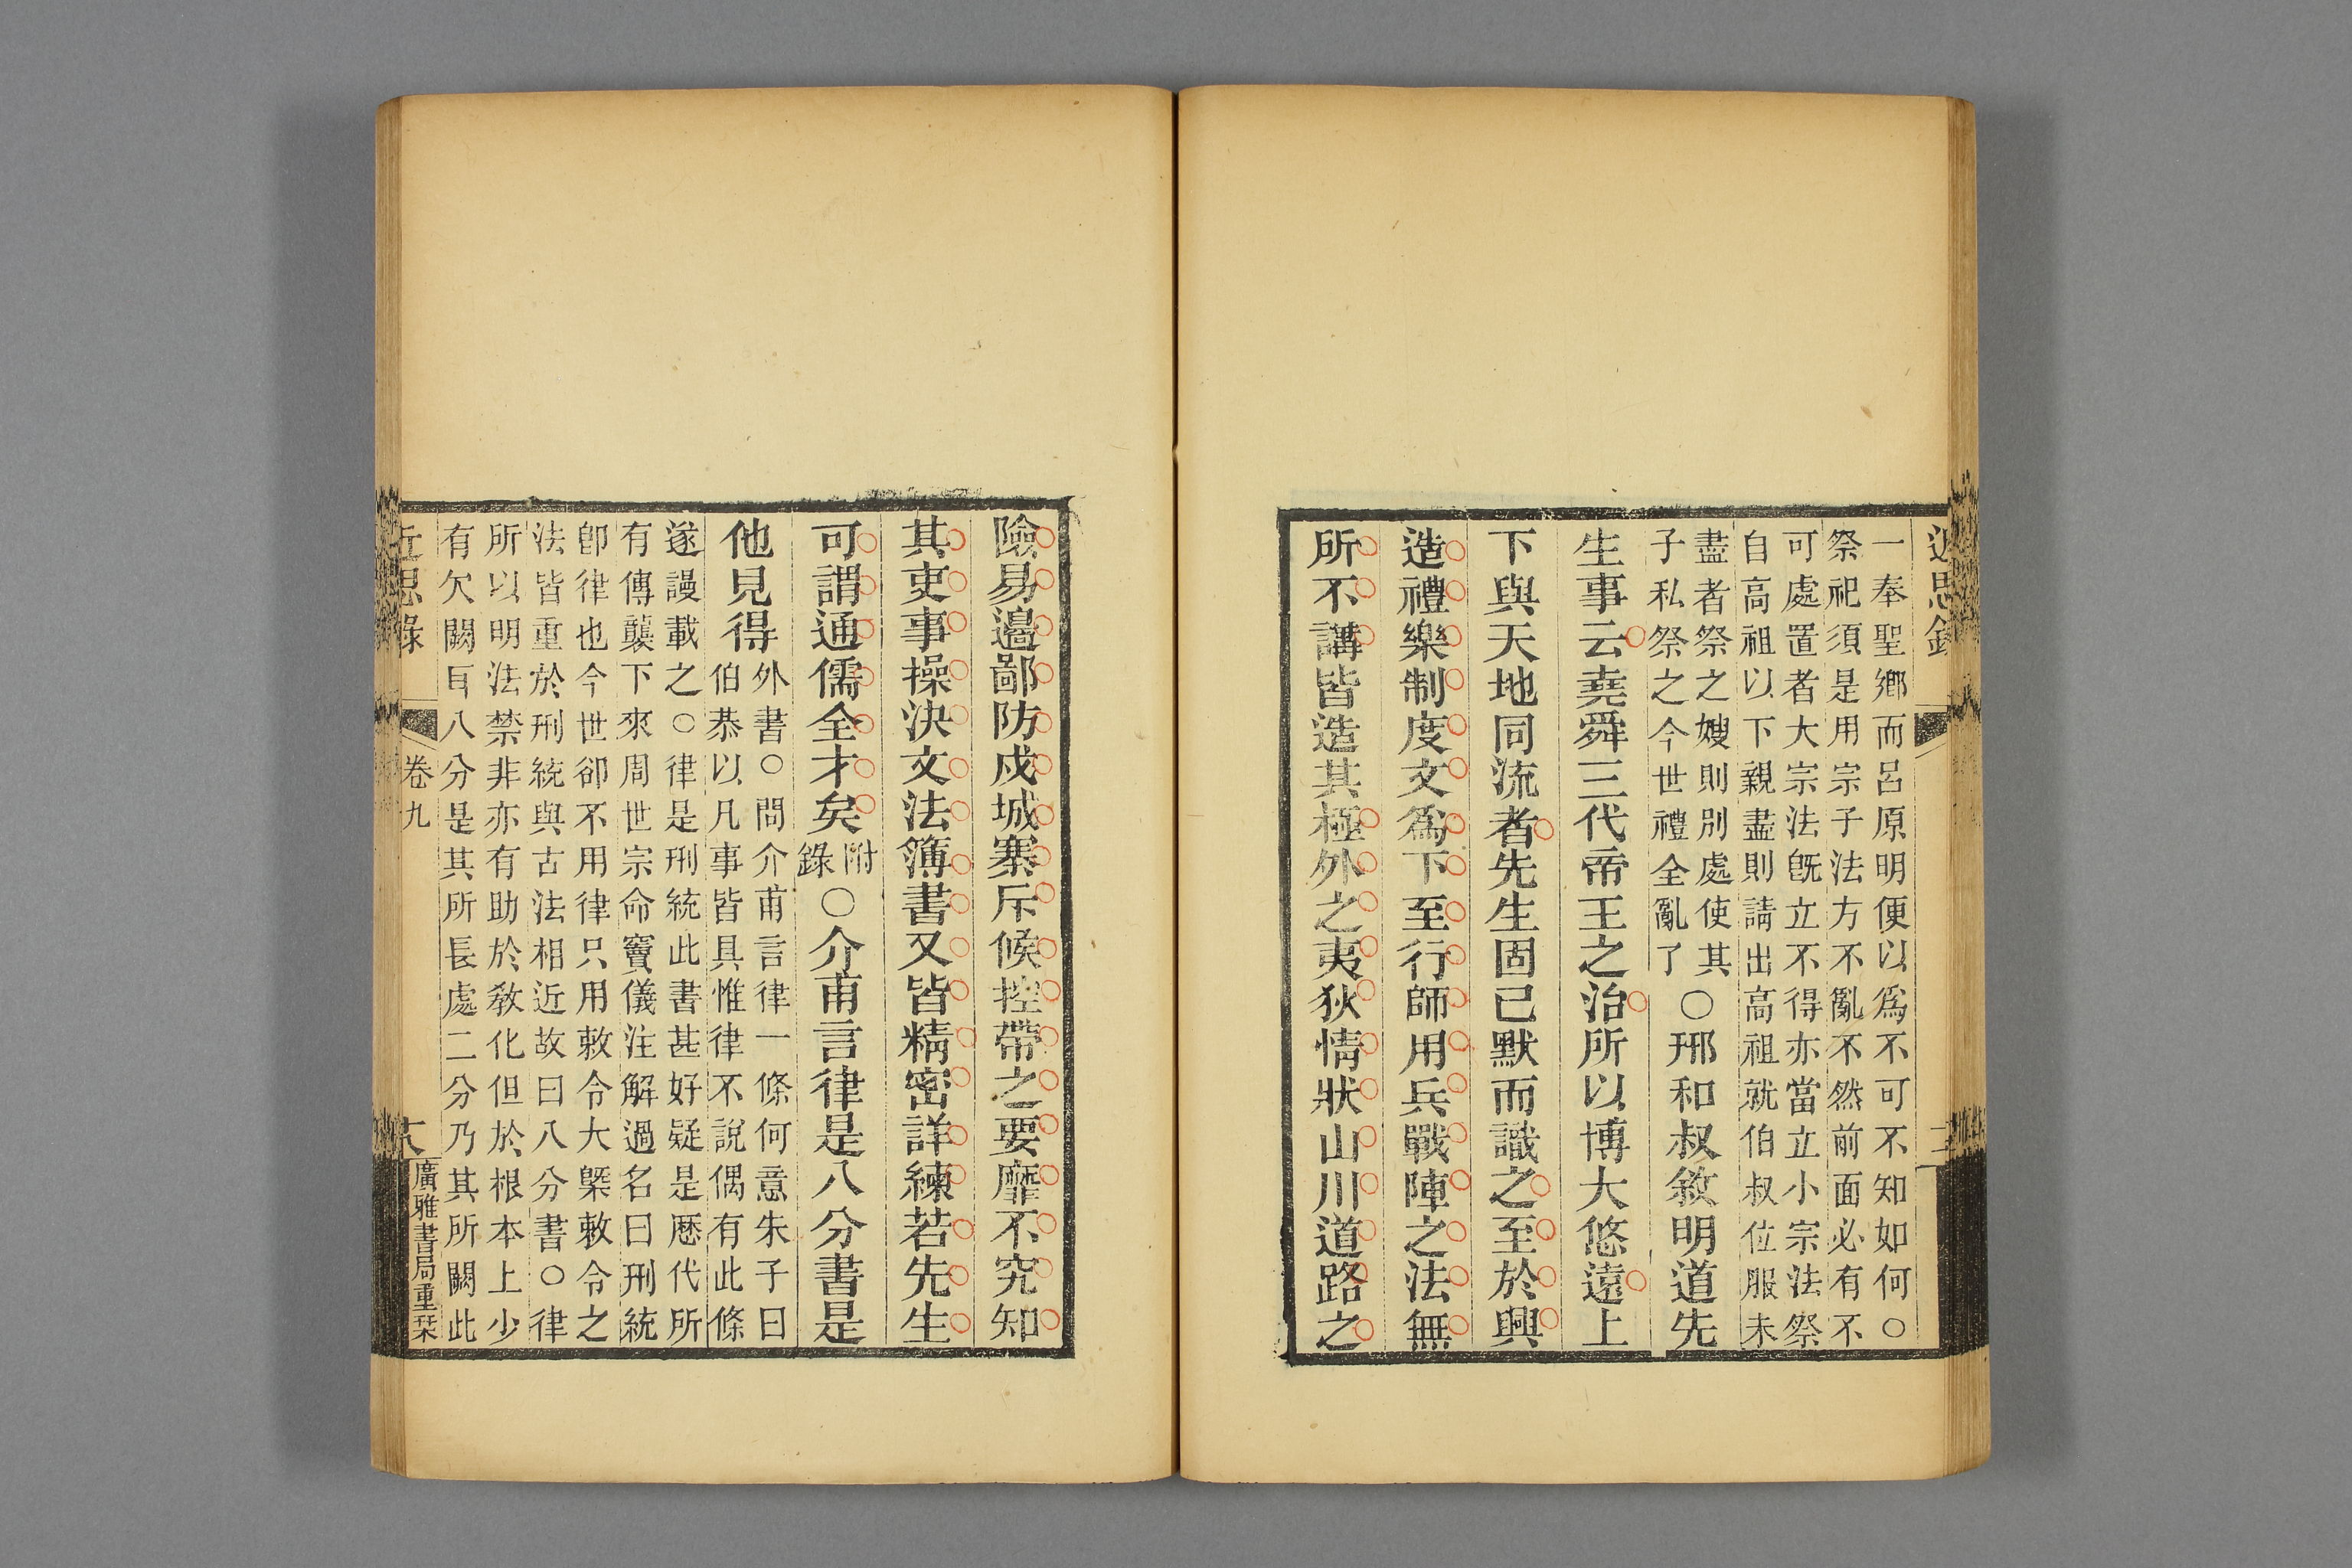 近思錄
一奉聖鄉而呂原明便以爲不可不知如何○
祭祀須是用宗子法方不亂不然前面必有不
可處置者大宗法旣立不得亦當立小宗法祭
自高祖以下親盡則請出高祖就伯叔位服未
盡者祭之嫂則別處使其
子私祭之今世禮全亂了
○邢和叔敘明道先
生事云堯舜三代帝王之治所以博大悠遠上
下與天地同流者先生固已默而識之至於興
造禮樂制度文爲下至行師用兵戰陣之法無
所不講皆造其極外之夷狄情狀山川道路之
險易邊鄙防戍城寨斥候控帶之要靡不究知
其吏事操決文法簿書又皆精密詳練若先生
可謂通儒全才矣
附
錄
○介甫言律是八分書是
他見得
外書○問介甫言律一條何意朱子曰
伯恭以凡事皆具惟律不說偶有此條
遂謾載之○律是刑統此書甚好疑是歷代所
有傳襲下來周世宗命竇儀注解過名曰刑統
卽律也今世卻不用律只用敕令大槩敕令之
法皆重於刑統與古法相近故曰八分書○律
所以明法禁非亦有助於敎化但於根本上少
有欠闕耳八分是其所長處二分乃其所闕此
近思錄
卷九
廣雅書局重栞